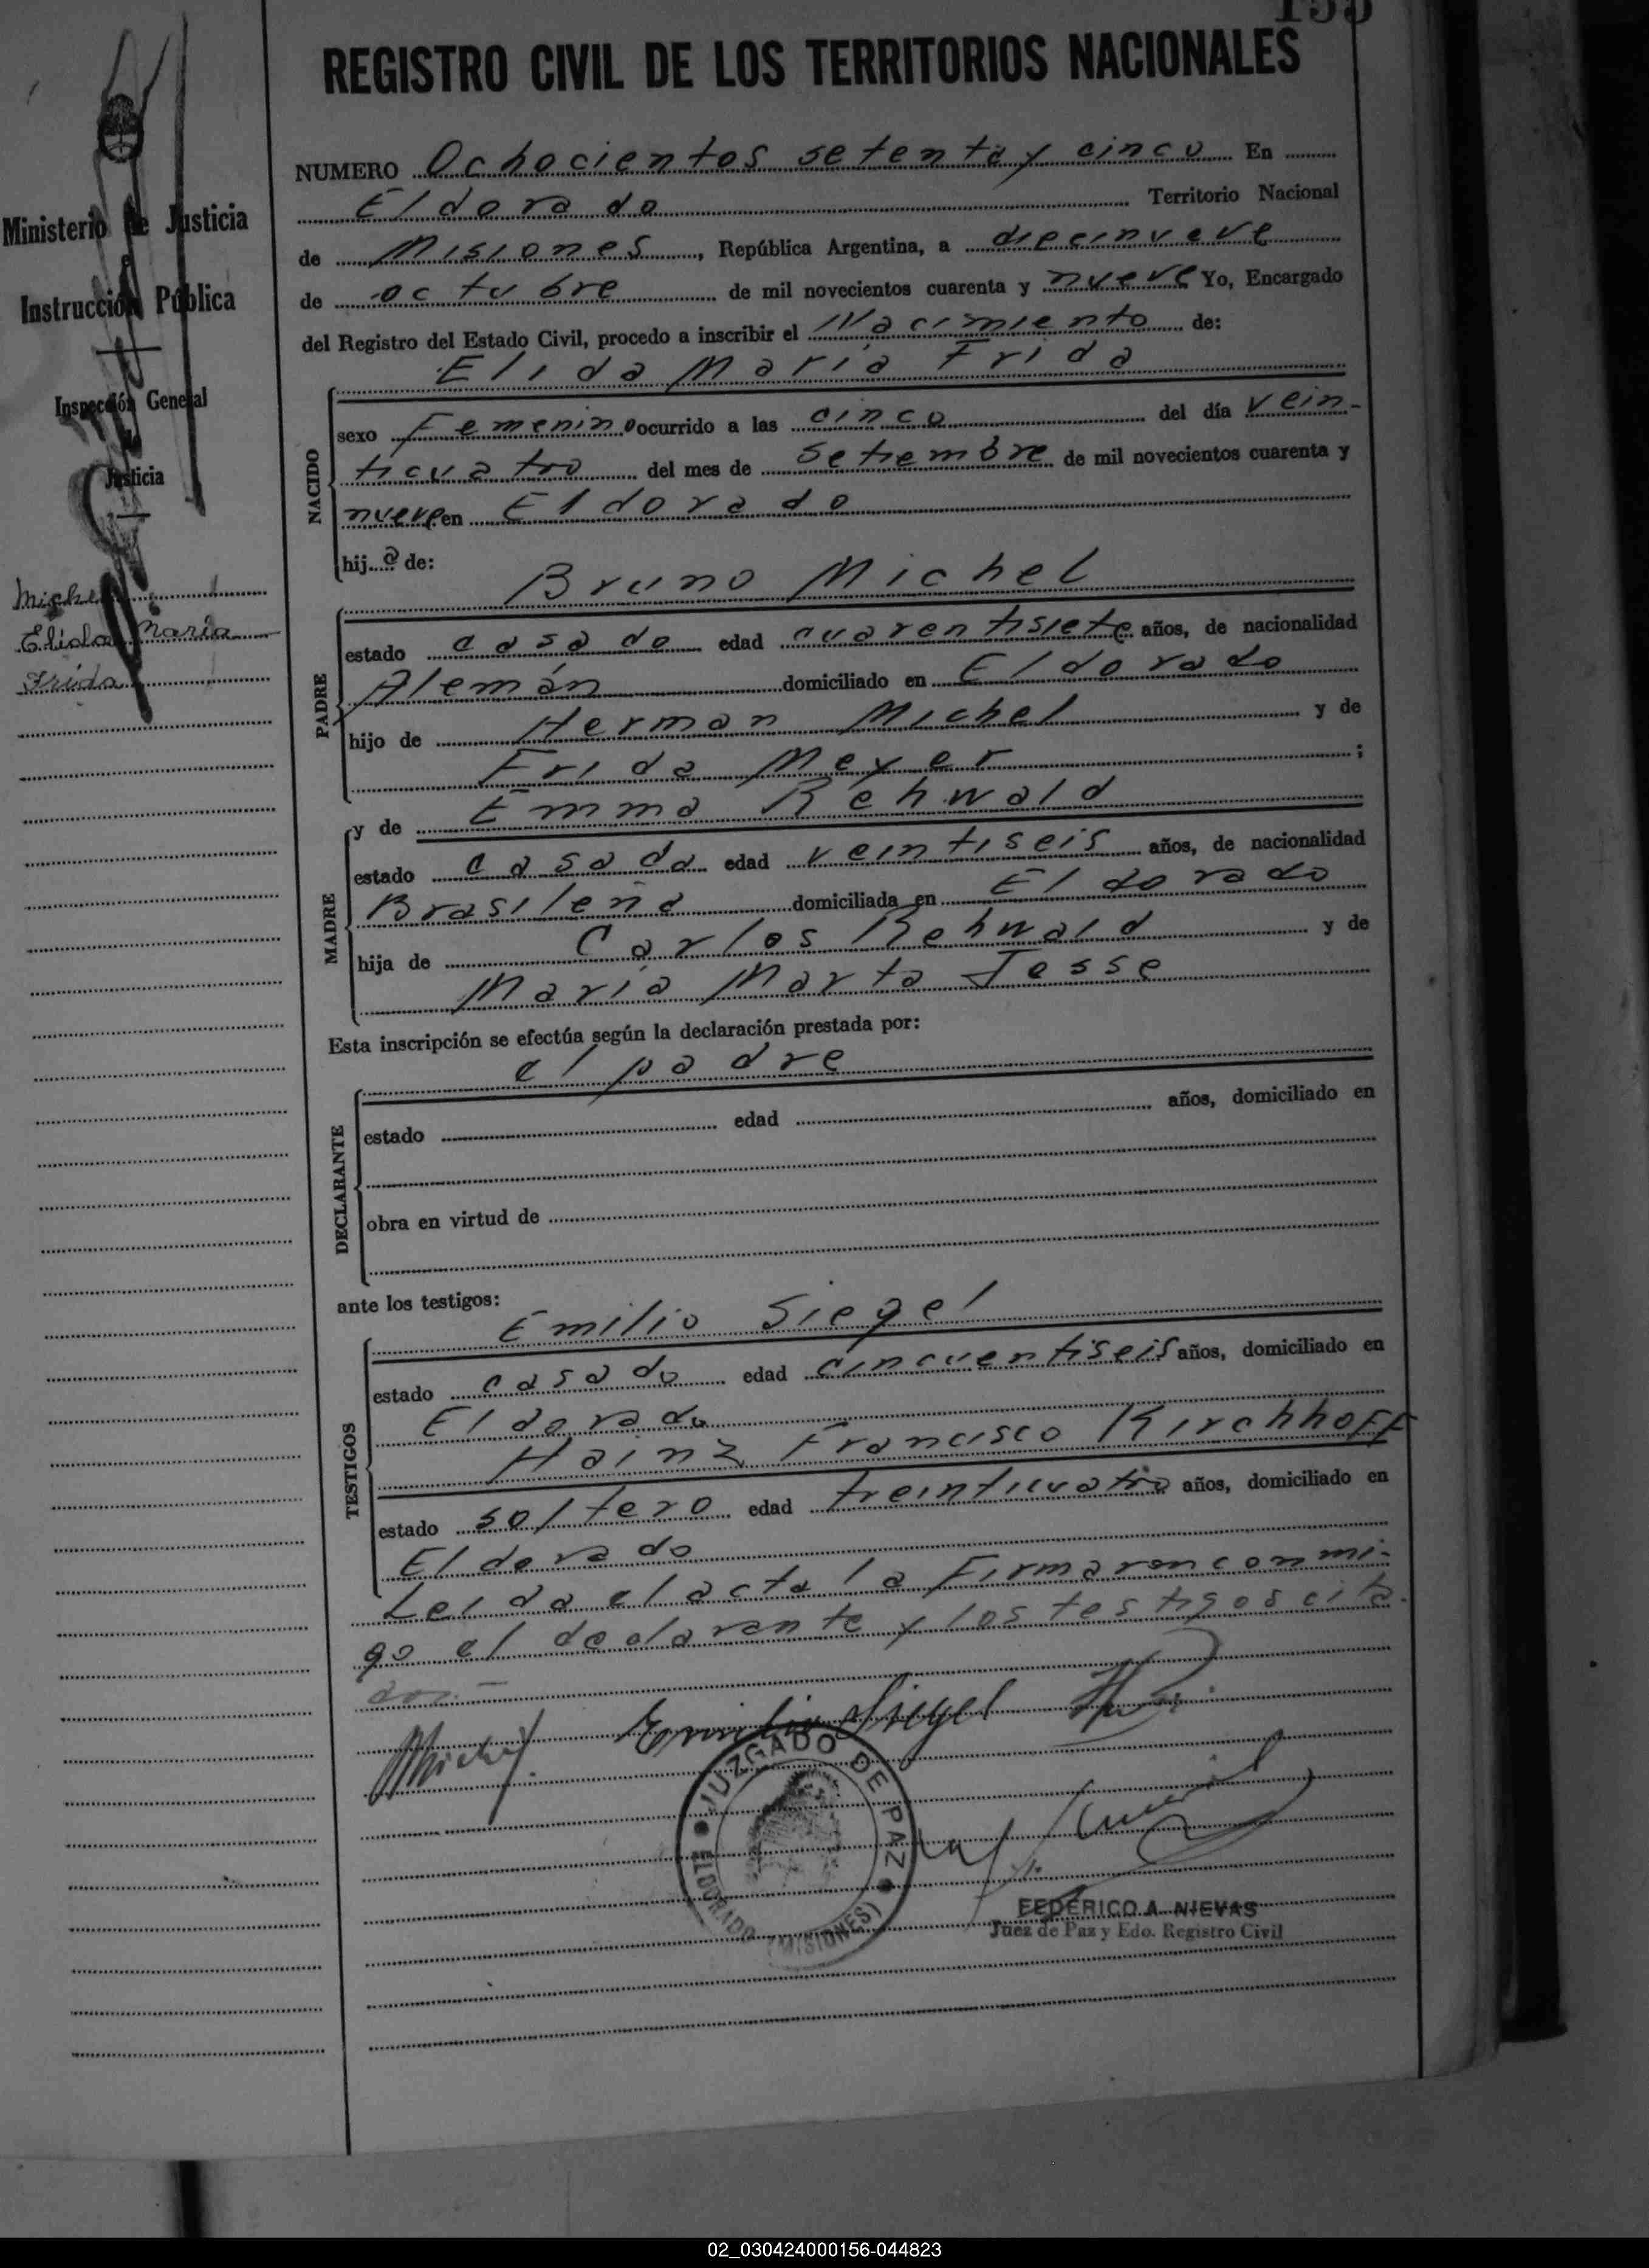 155
REGISTRO CIVIL DE LOS TERRITORIOS NACIONALES
Ministerio de Justicia
e
Instrucción Pública
Inspección General
Justicia
Michel
Elida Maria
Frida
NUMERO Ochocientos setenta y cinco En
Eldorado Territorio Nacional
de Misiones, República Argentina, a diecinueve
de octubre de mil novecientos cuarenta y nueve Yo, Encargado
del Registro del Estado Civil, procedo a inscribir el Nacimiento de:
Elida Maria Frida
NACIDO
sexo Femenino ocurrido a las cinco del día vein-
ticuatro del mes de setiembre de mil novecientos cuarenta y
nueve en Eldorado
hija de:
Bruno Michel
PADRE
estado casado edad cuarentisiete años, de nacionalidad
Alemán domiciliado en Eldorado
hijo de Herman Michel y de
Frida Meyer ;
MADRE
y de Emma Rehwald
estado casada edad veintiseis años, de nacionalidad
Brasileña domiciliada en Eldorado
hija de Carlos Rehwald y de
Maria Marta Josse
Esta inscripción se efectúa según la declaración prestada por:
el padre
DECLARANTE
estado edad años, domiciliado en
obra en virtud de
ante los testigos:
Emilio Siegel
TESTIGOS
estado casado edad cincuentiseis años, domiciliado en
Eldorado
Hainz Francisco Kirchhoff
estado soltero edad treinticuatro años, domiciliado en
Eldorado
Leida el acta la Firmaron conmi-
go el declarante y los testigos cita-
dos.-
Emilio Siegel
Michel
JUZGADO DE PAZ
ELDORADO (MISIONES)
FEDERICO A. NIEVAS
Juez de Paz y Edo. Registro Civil
02_030424000156-044823